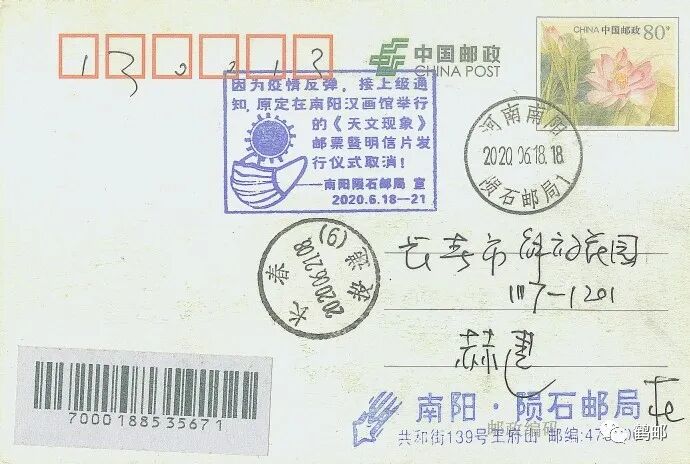 130213
中国邮政
CHINA POST
CHINA 中国邮政 80分
因为疫情反弹，接上级通
知，原定在南阳汉画馆举行
的《天文现象》
邮票暨明信片发
行仪式取消！
——南阳陨石邮局 宣
2020.6.18—21
河南南阳
2020.06.18.18
陨石邮局1
长春
2020.06.21.08
投递(9)
长春市
117-1201
赫
7000188535671
南阳·陨石邮局
共和街139号王府山 邮编:47
邮政编码
鹤邮